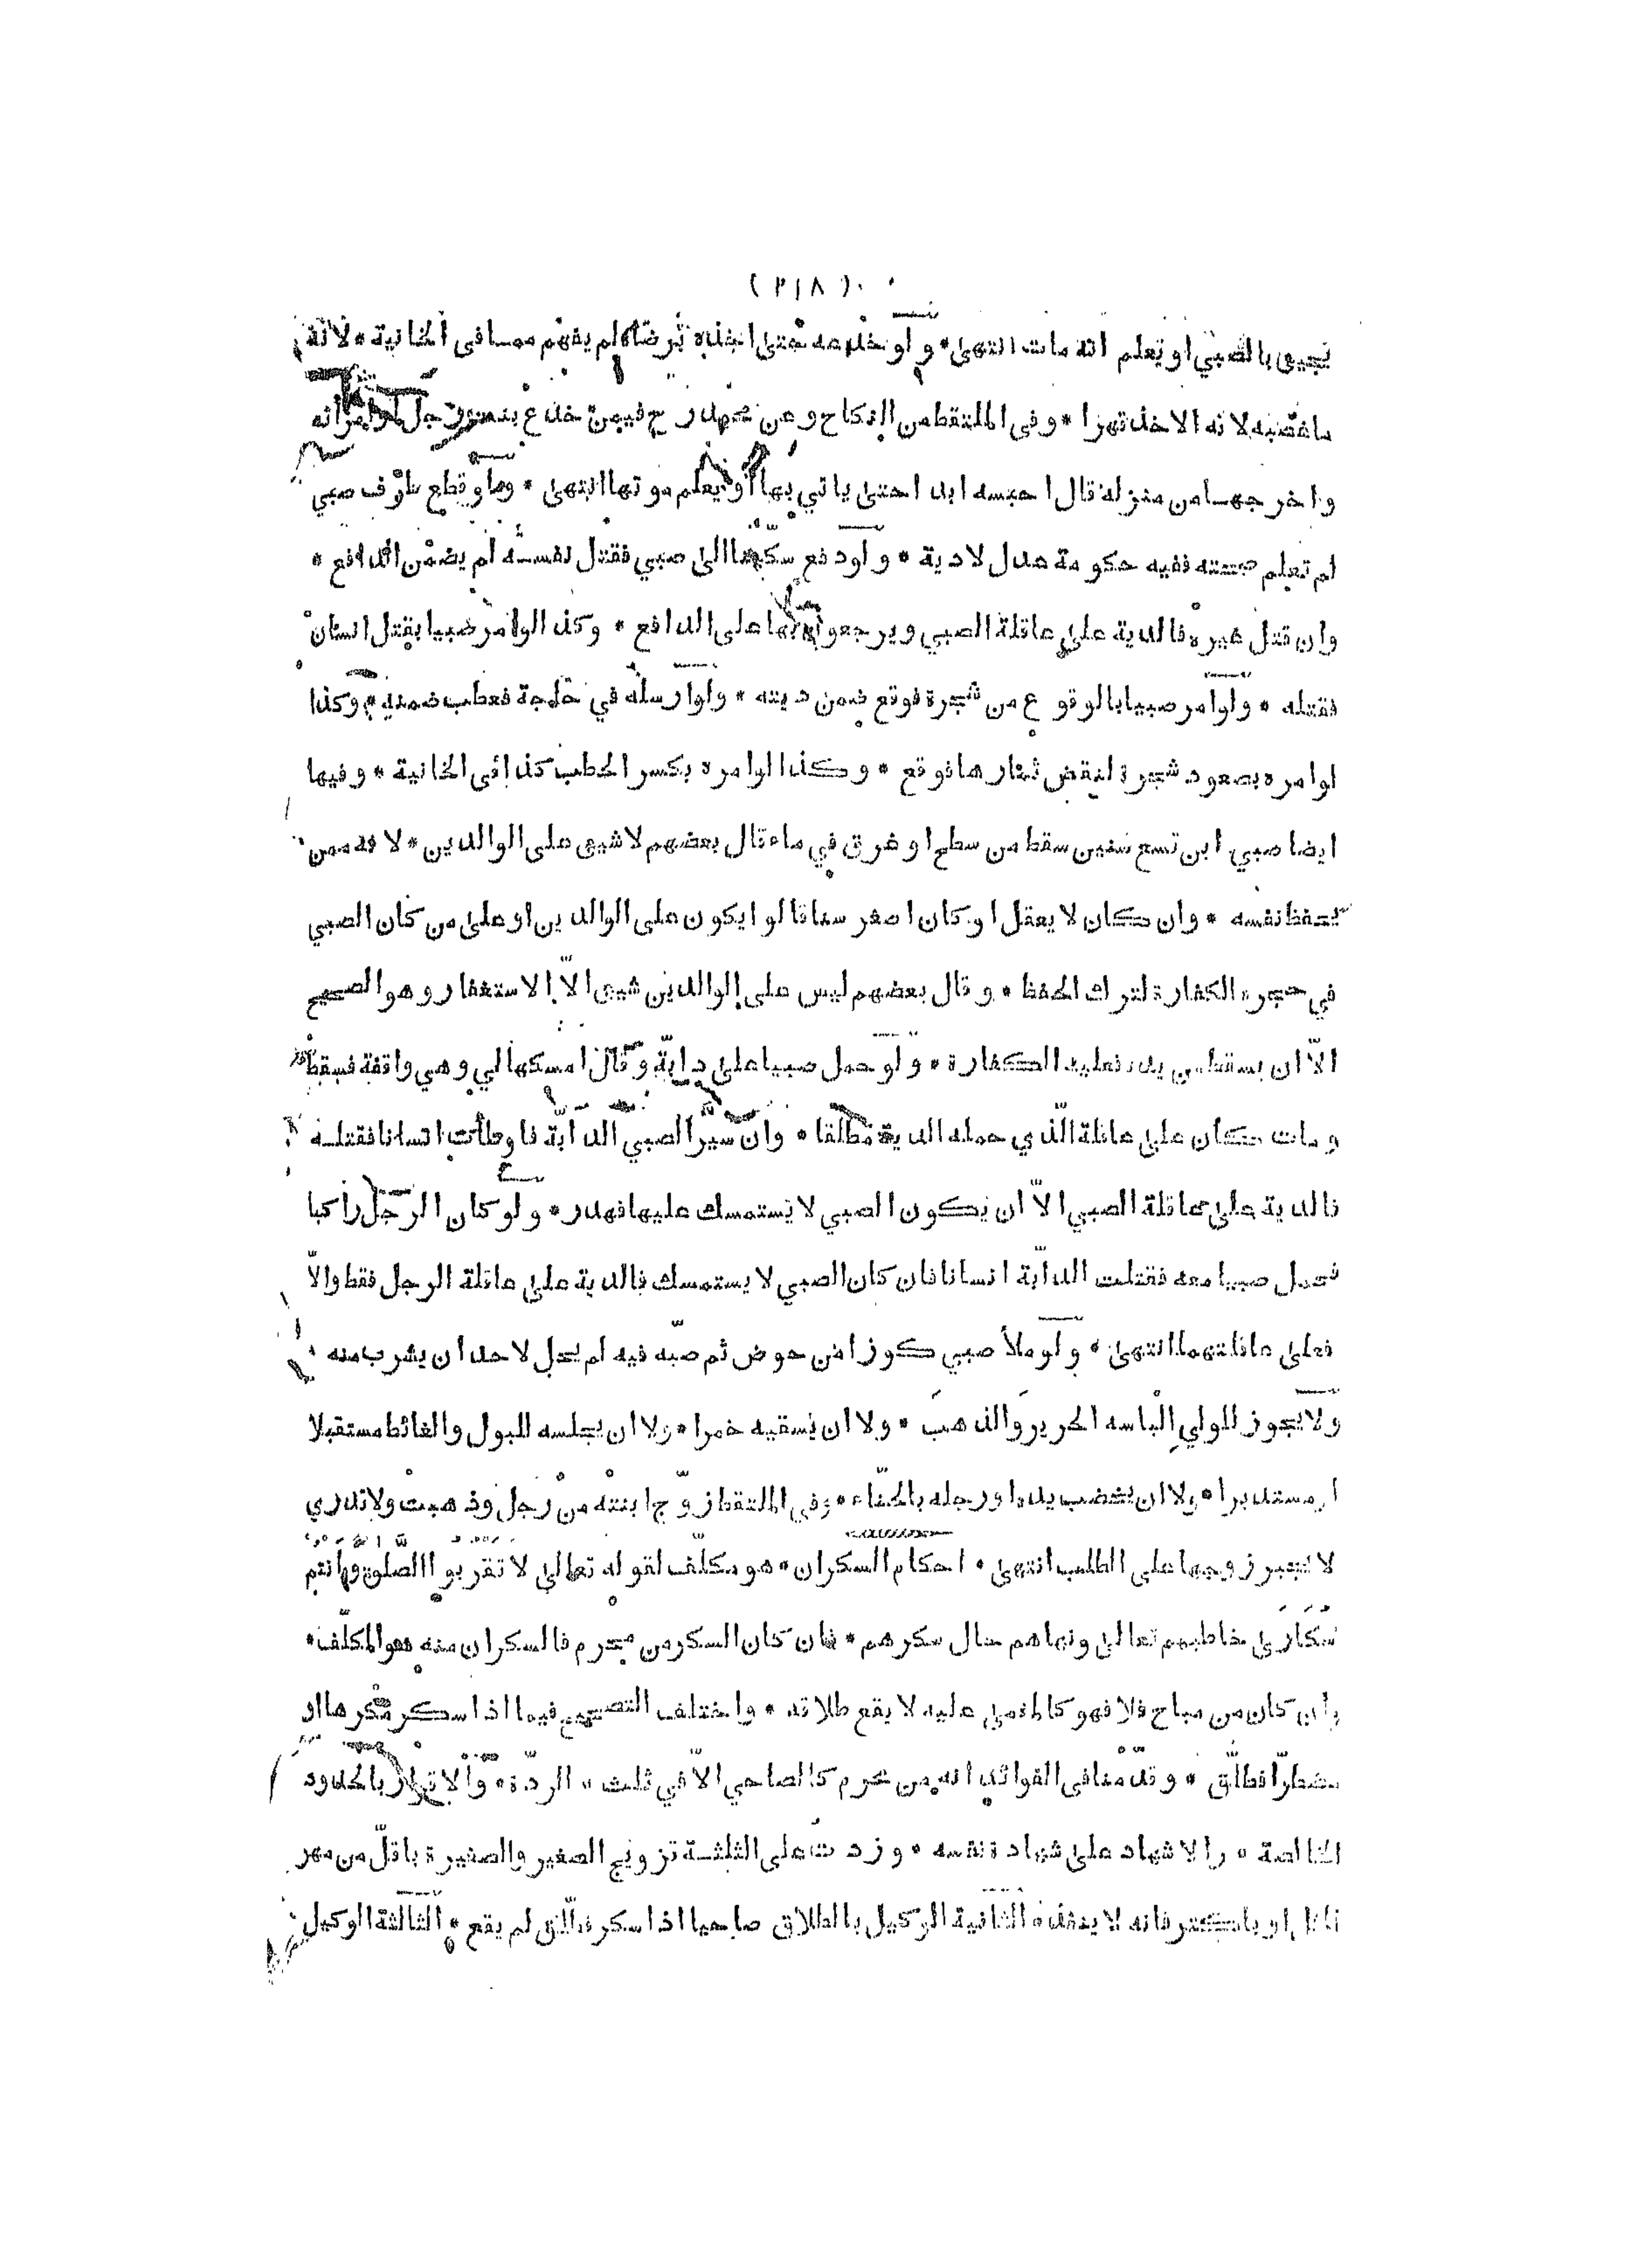 ( ٣١٨ )
يجيئ بالصبي او تعلم انه مات انتهى * ولو خدعه حتى اخذه برضاه لم يفهم مما في الخانية * لانه
ما غصبه لانه الاخذ قهرا * وفي الملتقط من النكاح وعن محمد رح فيمن خدع بنت رجل او امرأته
واخرجها من منزله قال احبسه ابدا حتى ياتي بها او يعلم موتها انتهى * ولو قطع طرف صبي
لم تعلم صحته ففيه حكومة عدل لا دية * ولو دفع سكينا الى صبي فقتل نفسه لم يضمن الدافع *
وان قتل غيره فالدية على عاقلة الصبي ويرجعون بها على الدافع * وكذا لو امر صبيا بقتل انسان
فقتله * ولو امر صبيا بالوقوع من شجرة فوقع ضمن ديته * ولو ارسله في حاجة فعطب ضمنه * وكذا
لو امره بصعود شجرة لنقض ثمارها فوقع * وكذا لو امره بكسر الحطب كذا في الخانية * وفيها
ايضا صبي ابن تسع سنين سقط من سطح او غرق في ماء قال بعضهم لا شيئ على الوالدين * لانه ممن
يحفظ نفسه * وان كان لا يعقل او كان اصغر سنا قالوا يكون على الوالدين او على من كان الصبي
في حجره الكفارة لترك الحفظ * وقال بعضهم ليس على الوالدين شيئ الّا الاستغفار وهو الصحيح
الّا ان يسقط من يده فعليه الكفارة * ولو حمل صبيا على دابّة وقال امسكها لي وهي واقفة فسقط
ومات كان على عاقلة الّذي حمله الدية مطلقا * وان سيّر الصبي الدابّة فاوطأت انسانا فقتلته
فالدية على عاقلة الصبي الّا ان يكون الصبي لا يستمسك عليها فهدر * ولو كان الرجل راكبا
فحمل صبيا معه فقتلت الدابّة انسانا فان كان الصبي لا يستمسك فالدية على عاقلة الرجل فقط والّا
فعلى عاقلتهما انتهى * ولو ملأ صبي كوزا من حوض ثم صبّه فيه لم يحل لاحد ان يشرب منه *
ولا يجوز للولي الباسه الحرير والذهب * ولا ان يسقيه خمرا * ولا ان يجلسه للبول والغائط مستقبلا
او مستدبرا * ولا ان يخضب يده او رجله بالحنّاء * وفي الملتقط زوّج ابنته من رجل وذهبت ولا تدري
لا يجبر زوجها على الطلب انتهى * احكام السكران * هو مكلّف لقوله تعالى لا تَقْرَبُوا الصَّلٰوةَ وَأَنْتُمْ
سُكَارَى خاطبهم تعالى ونهاهم حال سكرهم * فان كان السكر من محرم فالسكران منه هو المكلّف *
وان كان من مباح فلا فهو كالمغمى عليه لا يقع طلاقه * واختلف التصحيح فيما اذا سكر مكرها او
مضطرّا فطلّق * وقدّمنا في الفوائد انه من محرم كالصاحي الّا في ثلث * الردّة * والاقرار بالحدود
الخالصة * والاشهاد على شهادة نفسه * وزدت على الثلثة تزويج الصغير والصغيرة باقلّ من مهر
المثل او باكثر فانه لا ينفذ * الثانية الوكيل بالطلاق صاحيا اذا سكر فطلّق لم يقع * الثالثة الوكيل